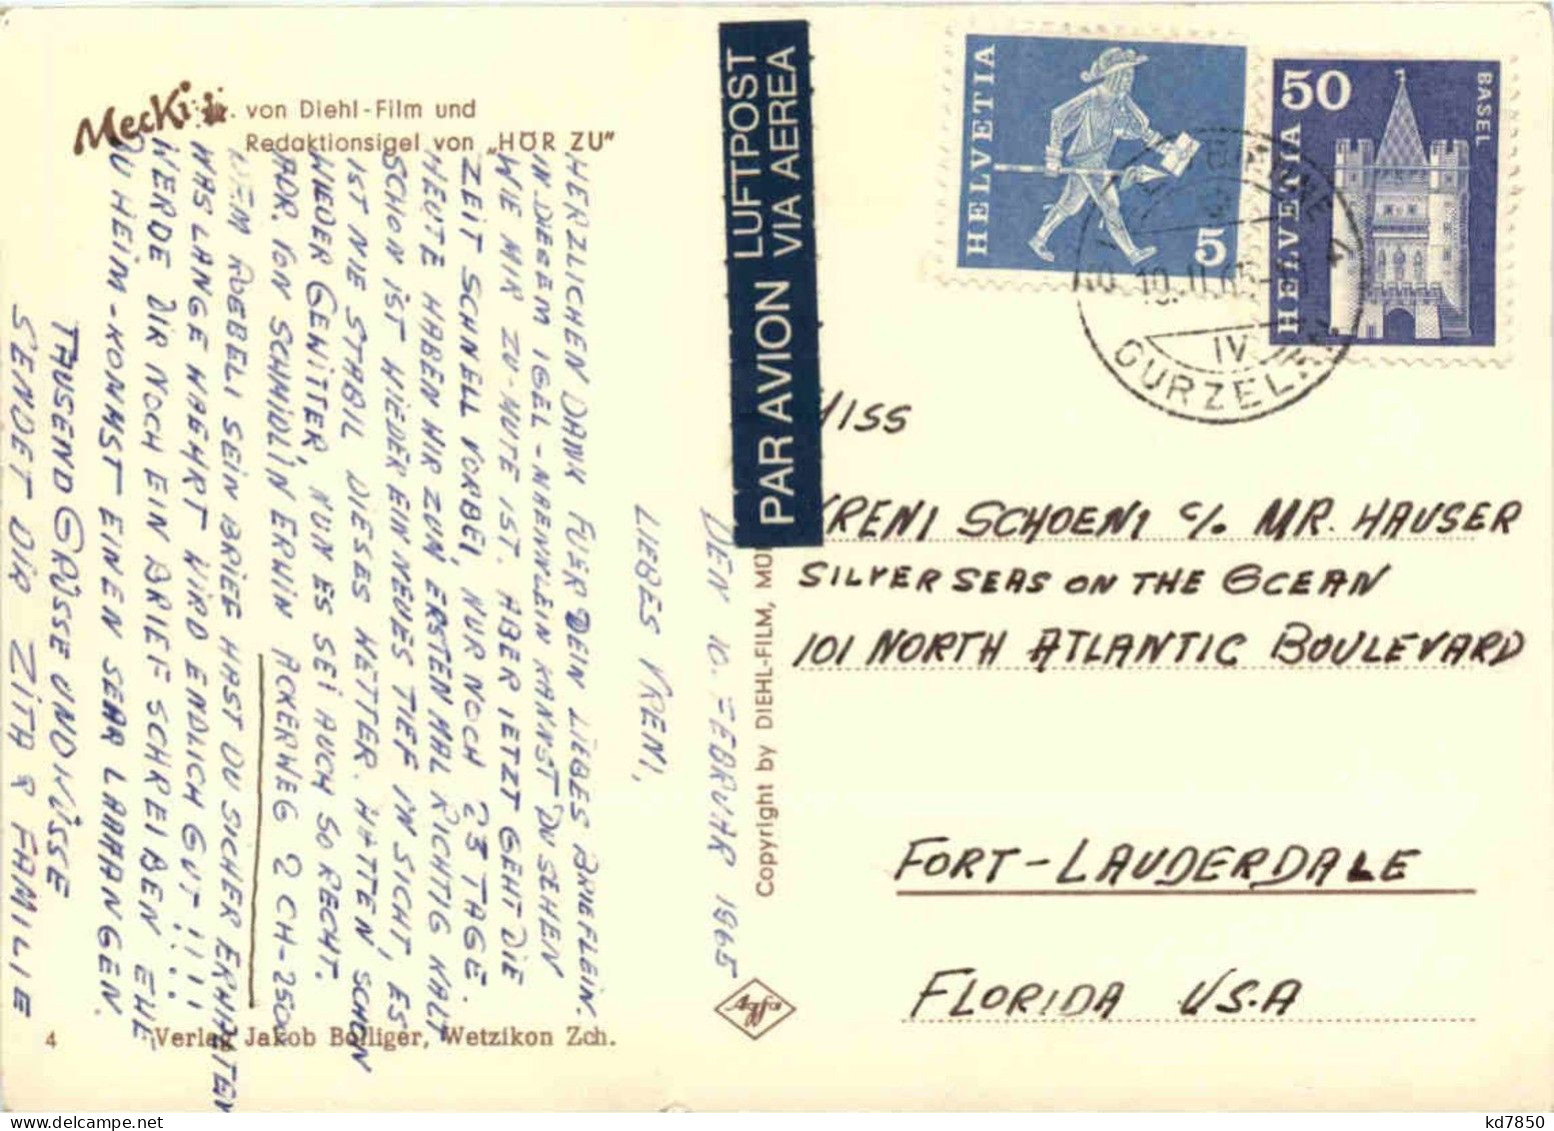 Mecki
von Diehl-Film und
Redaktionsigel von „HÖR ZU"
DEN 10. FEBRUAR 1965
LIEBES VRENI,
HERZLICHEN DANK FUER DEIN LIEBES BRIEFLEIN.
IN DIESEM IGEL-MAENNLEIN KANNST DU SEHEN
WIE MIR ZU-MUTE IST. ABER JETZT GEHT DIE
ZEIT SCHNELL VORBEI, NUR NOCH 23 TAGE.
HEUTE HABEN WIR ZUM ERSTEN MAL RICHTIG KALT
SCHON IST WIEDER EIN NEUES TIEF IN SICHT, ES
IST NIE STABIL DIESES WETTER. HATTEN SCHON
WIEDER GEWITTER, NUN ES SEI AUCH SO RECHT.
ADR. VON SCHMIDLIN ERWIN ACKERWEG 2 CH-250
DEM ROEBELI SEIN BRIEF HAST DU SICHER ERHALTEN
WAS LANGE WAEHRT WIRD ENDLICH GUT !!!!
WERDE DIR NOCH EIN BRIEF SCHREIBEN EHE
DU HEIM-KOMMST EINEN SEHR LAAAANGEN.
TAUSEND GRÜSSE UND KÜSSE
SENDET DIR ZITA & FAMILIE
4
Verlag Jakob Bolliger, Wetzikon Zch.
Copyright by DIEHL-FILM,
Agfa
PAR AVION LUFTPOST
VIA AEREA
HELVETIA
5
50
HELVETIA
BASEL
10. II. 65
IV
GURZELEN
MISS
VRENI SCHOENI C/O MR. HAUSER
SILVER SEAS ON THE OCEAN
101 NORTH ATLANTIC BOULEVARD
FORT-LAUDERDALE
FLORIDA U.S.A
kd7850